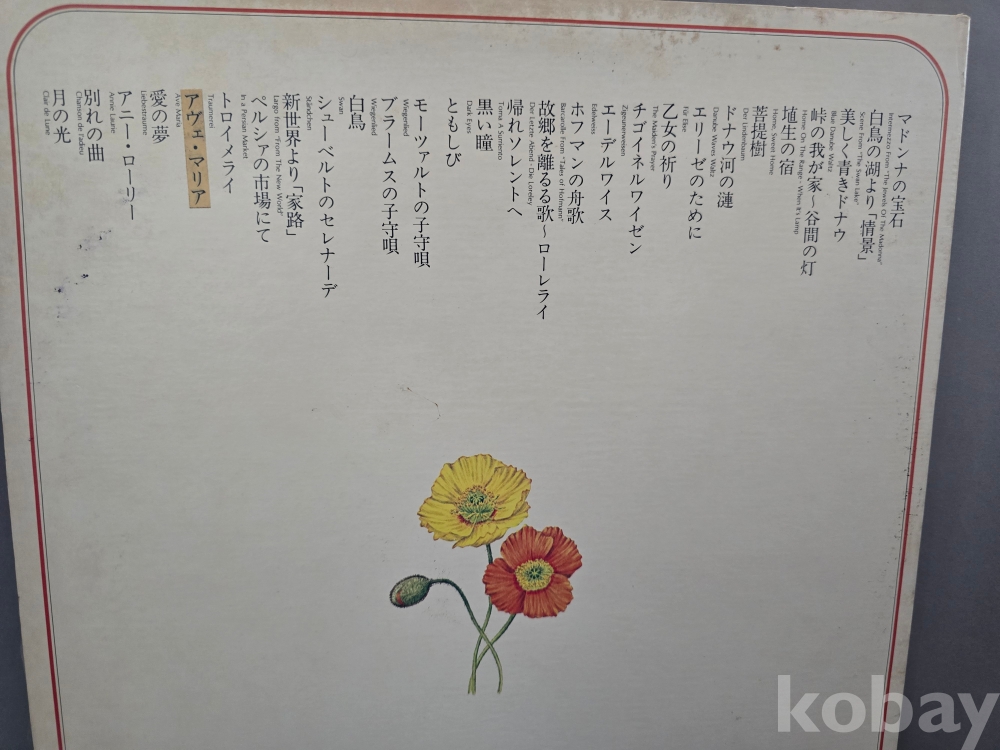 マドンナの宝石
Intermezzo From "The Jewels Of The Madonna"
白鳥の湖より「情景」
Scene From "The Swan Lake"
美しく青きドナウ
Blue Danube Waltz
峠の我が家〜谷間の灯
Home On The Range - When It's Lamp
埴生の宿
Home, Sweet Home
菩提樹
Der Lindenbaum
ドナウ河の漣
Danube Waves Waltz
エリーゼのために
Für Elise
乙女の祈り
The Maiden's Prayer
チゴイネルワイゼン
Zigeunerweisen
エーデルワイス
Edelweiss
ホフマンの舟歌
Barcarolle From "Tales of Hofmann"
故郷を離るる歌〜ローレライ
Der Letzte Abend - Die Loreley
帰れソレントへ
Torna A Surriento
黒い瞳
Dark Eyes
ともしび
モーツァルトの子守唄
Wiegenlied
ブラームスの子守唄
Wiegenlied
白鳥
Swan
シューベルトのセレナーデ
Ständchen
新世界より「家路」
Largo from "From The New World"
ペルシァの市場にて
In a Persian Market
トロイメライ
Traumerei
アヴェ・マリア
Ave Maria
愛の夢
Liebestraume
アニー・ローリー
Annie Laurie
別れの曲
Chanson de l'adieu
月の光
Clair de Lune
kobay